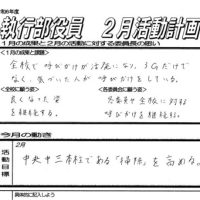 令和6年度
執行部役員 2月活動計画
1月の成果と2月の活動に対する委員長の思い
<1月の成果と課題>
全校で呼びかけが活発になり、3年だけで
なく、気づいた人が呼びかけをしている。
<全校に願う姿>
各委員会に願う姿>
良くなった姿
を継続
各委員で全校に対する
呼びかけを継続する。
今月の動き
2月
活動目標
中央中三本柱である「掃除」を高める。
具体的に記入しよう